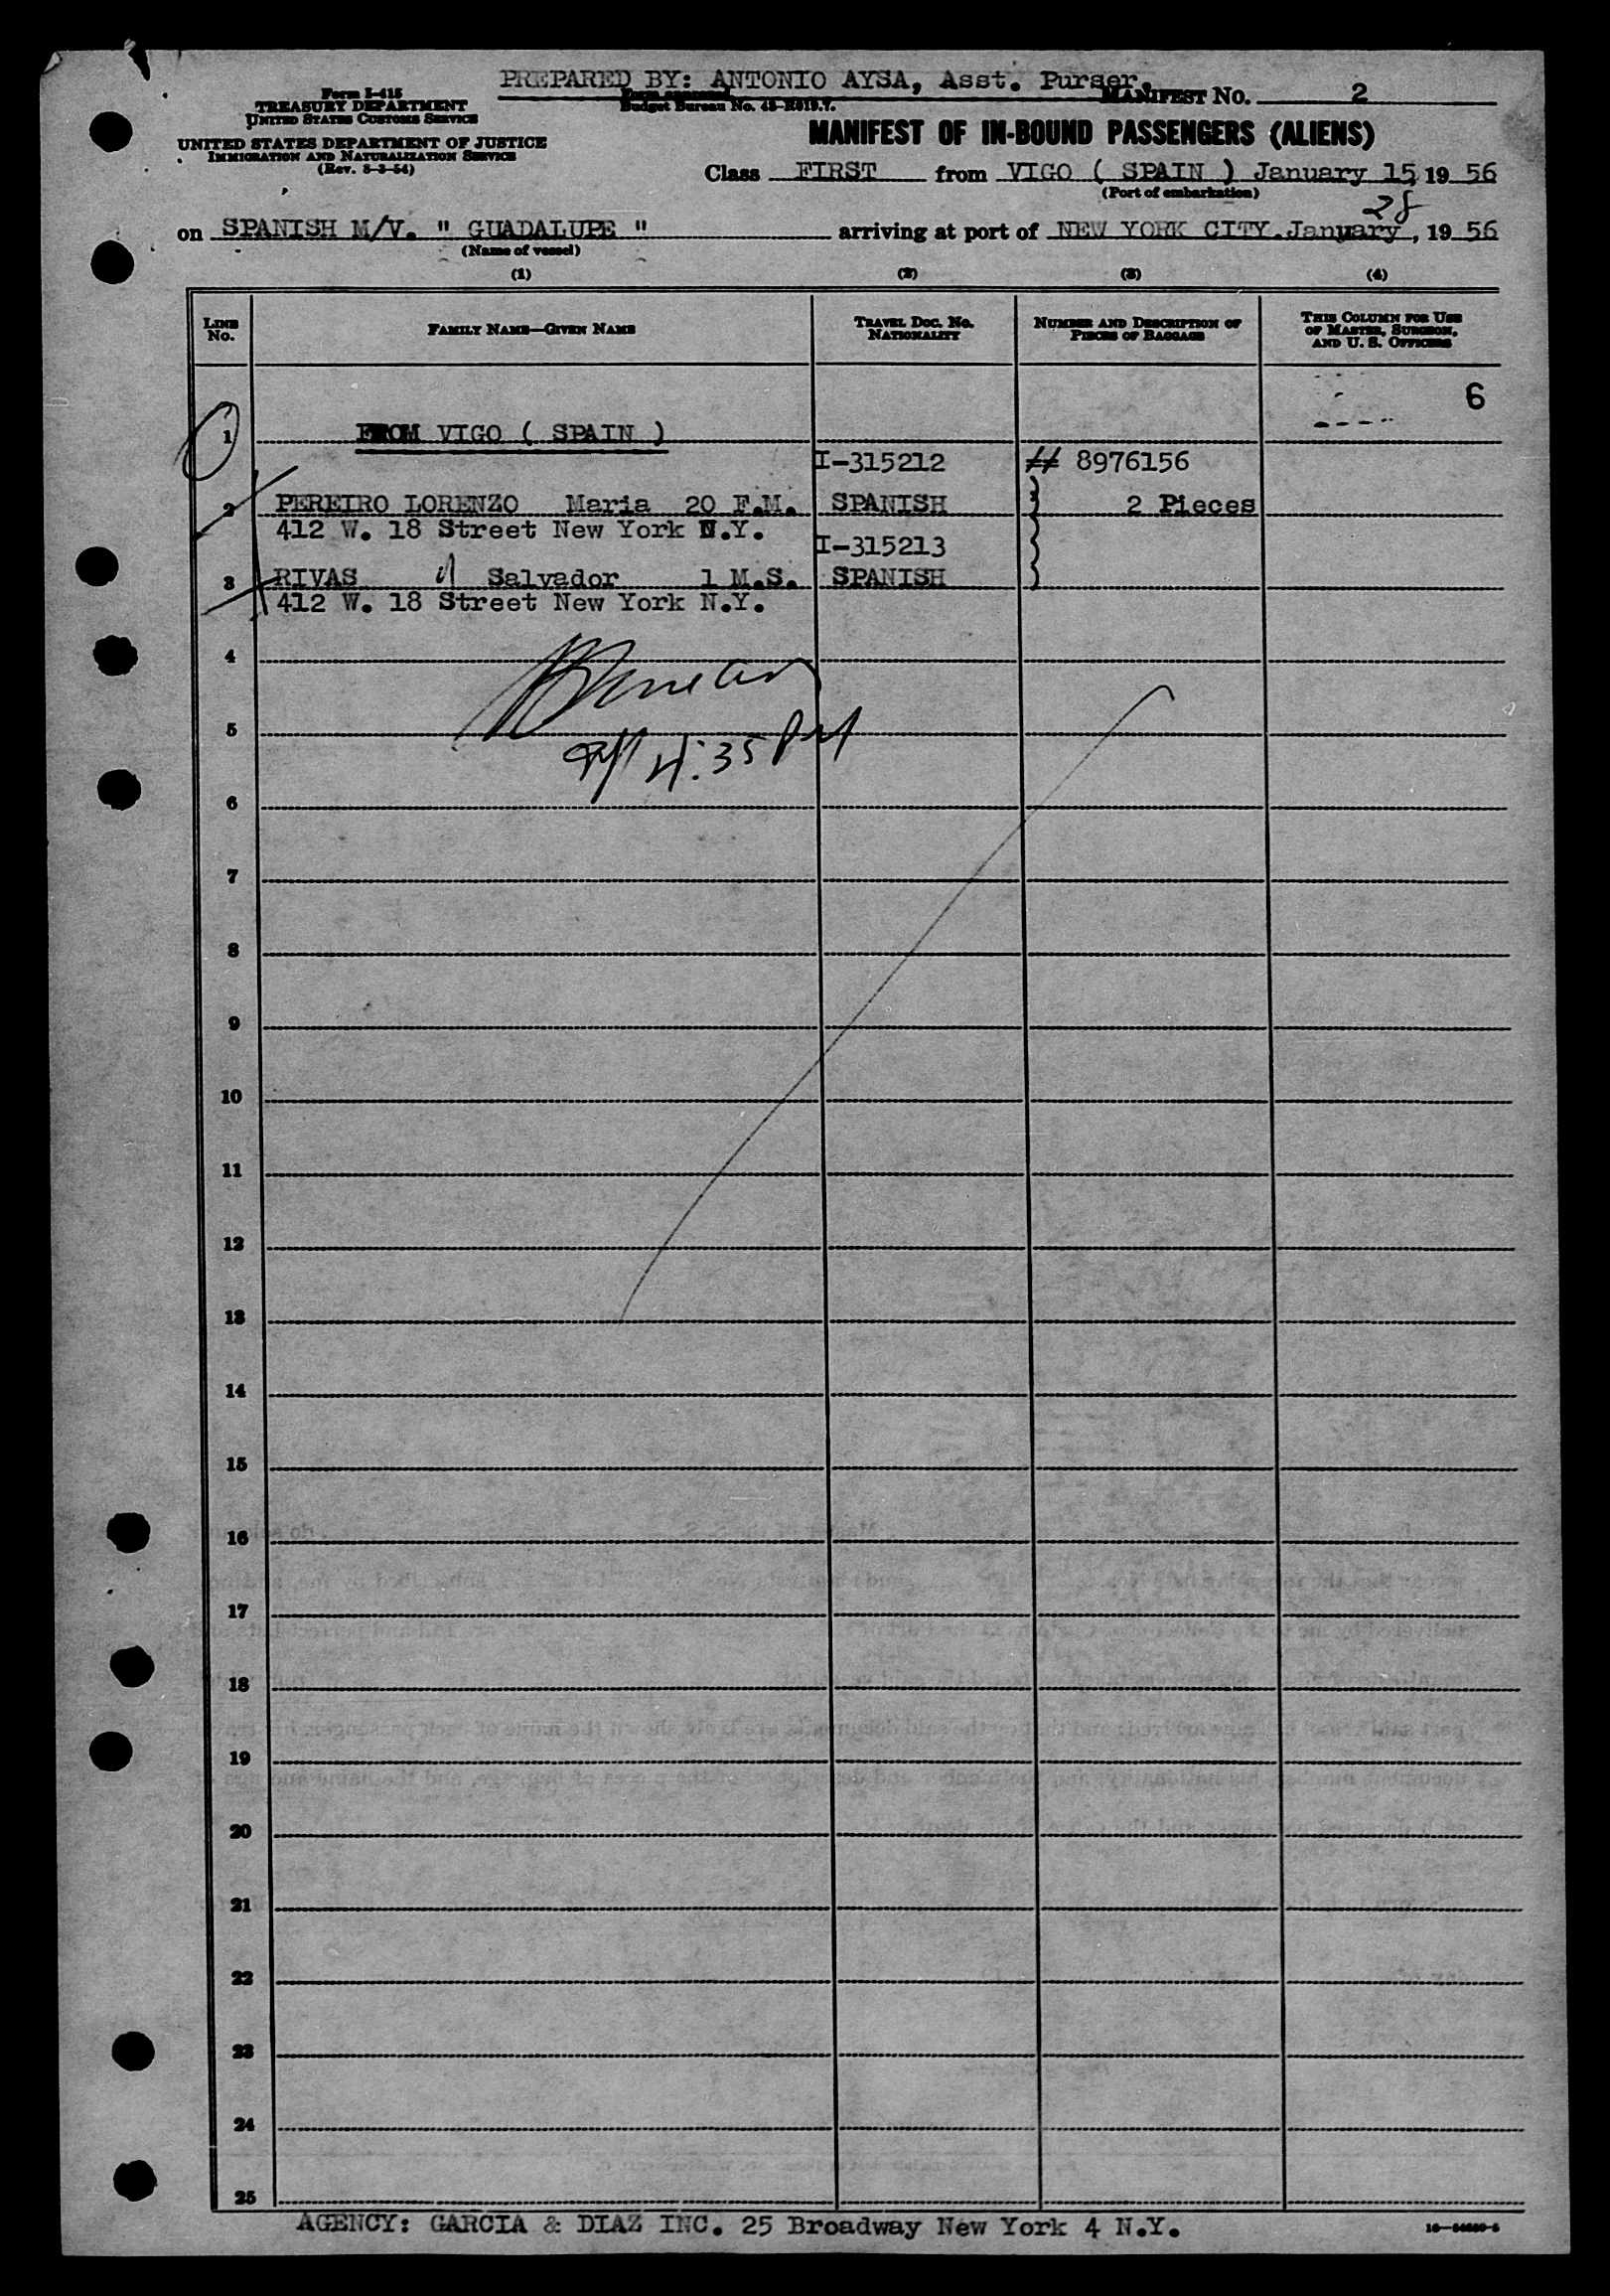 PREPARED BY: ANTONIO AYSA, Asst. Purser.
Form I-415
TREASURY DEPARTMENT
UNITED STATES CUSTOMS SERVICE
UNITED STATES DEPARTMENT OF JUSTICE
IMMIGRATION AND NATURALIZATION SERVICE
(Rev. 8-3-54)
Form approved
Budget Bureau No. 43-R319.7.
MANIFEST NO. 2
MANIFEST OF IN-BOUND PASSENGERS (ALIENS)
Class FIRST from VIGO ( SPAIN ) January 15, 19 56
(Port of embarkation)
28
on SPANISH M/V. " GUADALUPE " arriving at port of NEW YORK CITY. January , 19 56
(Name of vessel)
(1) (2) (3) (4)
LINE No.
FAMILY NAME—GIVEN NAME
TRAVEL DOC. No. NATIONALITY
NUMBER AND DESCRIPTION OF PIECES OF BAGGAGE
THIS COLUMN FOR USE OF MASTER, SURGEON, AND U. S. OFFICERS
6
1 FROM VIGO ( SPAIN )
I-315212 8976156
2 PEREIRO LORENZO Maria 20 F.M. SPANISH 2 Pieces
412 W. 18 Street New York N.Y.
I-315213
3 RIVAS Salvador 1 M.S. SPANISH
412 W. 18 Street New York N.Y.
4
5
4:35 PM
6
7
8
9
10
11
12
13
14
15
16
17
18
19
20
21
22
23
24
25
AGENCY: GARCIA & DIAZ INC. 25 Broadway New York 4 N.Y.